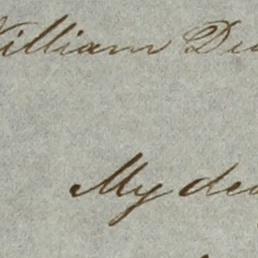 William De
My dea